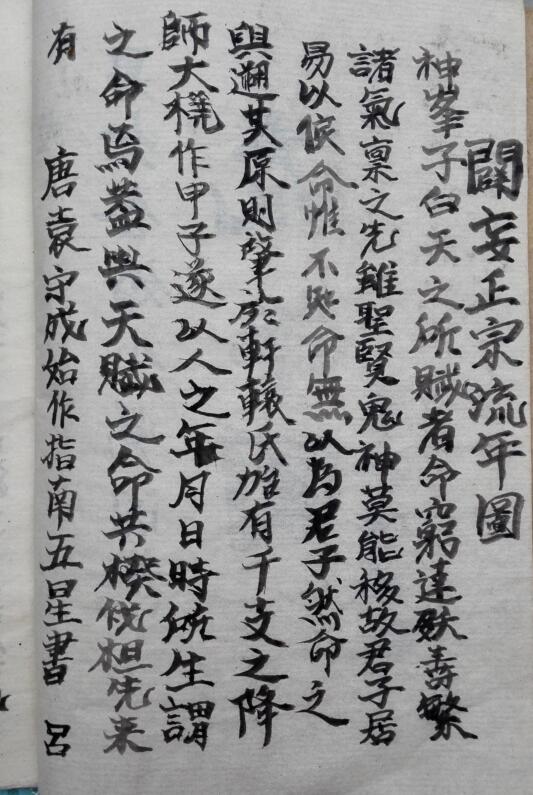 闢妄正宗流年圖
神峯子曰天之所賦者命窮達殀壽繁
諸氣禀之先雖聖賢鬼神莫能移故君子居
易以俟命惟不知命無以為君子然命之
與遡其原則肇於軒轅氏始有干支之降
師大橈作甲子遂以人之年月日時所生謂
之命焉蓋與天賦之命共揆伐柤先来
有 唐袁守成始作指南五星書 呂